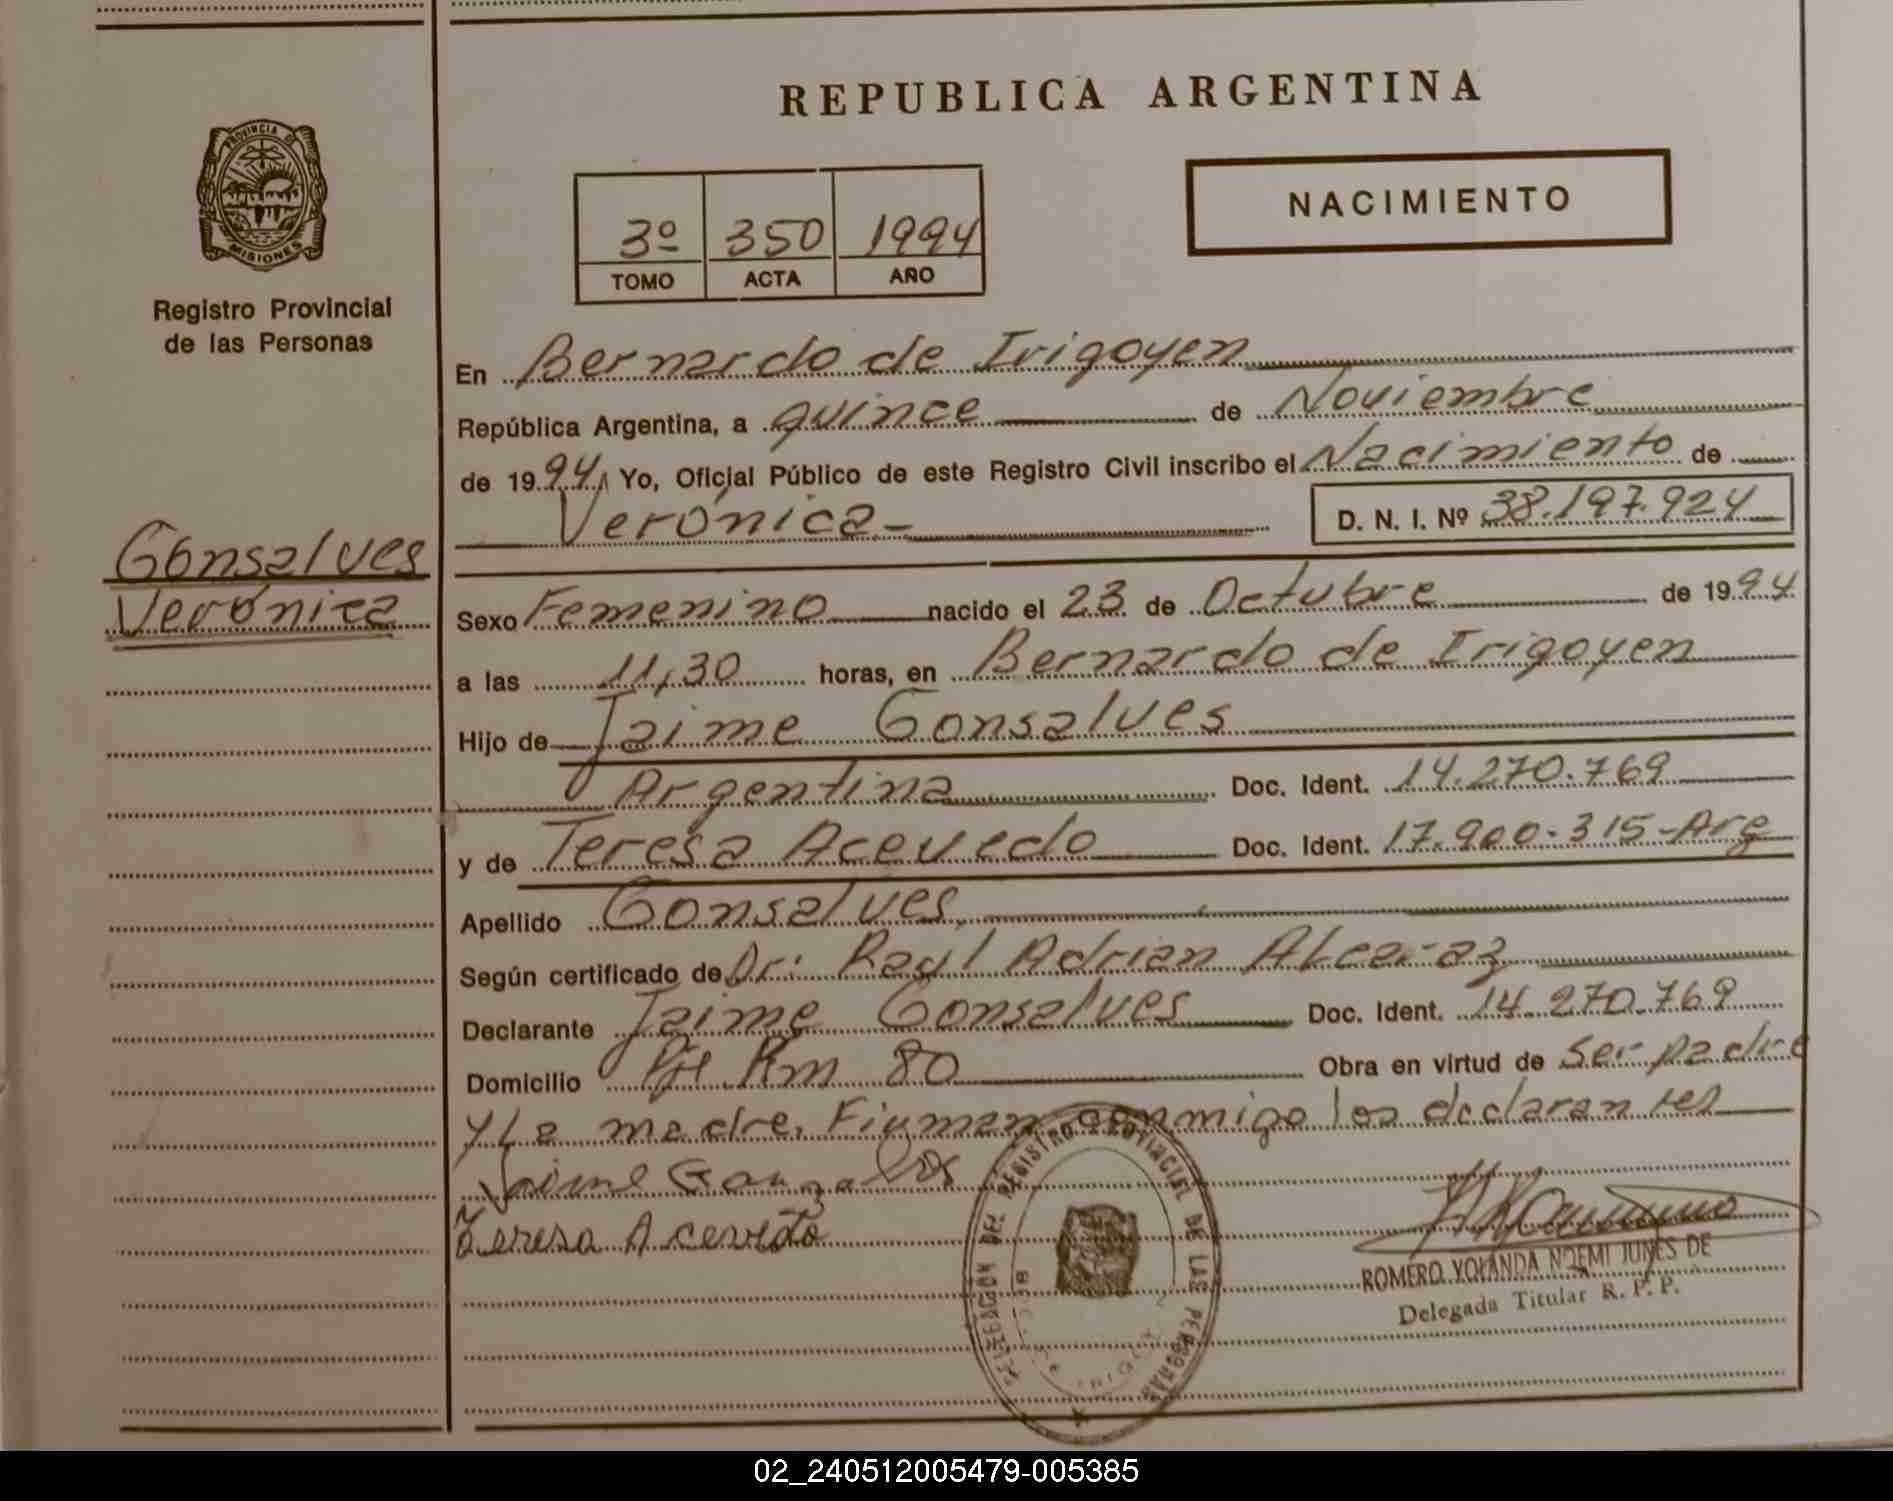 REPUBLICA ARGENTINA
PROVINCIA DE
MISIONES
Registro Provincial
de las Personas
3º 350 1994
TOMO ACTA AÑO
NACIMIENTO
Gonsalves
Verónica
En Bernardo de Irigoyen
República Argentina, a quince de Noviembre
de 1994 Yo, Oficial Público de este Registro Civil inscribo el Nacimiento de
Verónica D. N. I. Nº 38.197.924
Sexo Femenino nacido el 23 de Octubre de 1994
a las 11,30 horas, en Bernardo de Irigoyen
Hijo de Jaime Gonsalves
Argentina Doc. Ident. 14.270.769
y de Teresa Acevedo Doc. Ident. 17.900.315-Arg
Apellido Gonsalves
Según certificado de Dr. Raul Adrian Alcaraz
Declarante Jaime Gonsalves Doc. Ident. 14.270.769
Domicilio Km 80 Obra en virtud de ser padre
y La madre. Firman conmigo los declarantes
Jaime
Teresa Acevedo
DELEGACION DEL REGISTRO PROVINCIAL DE LAS PERSONAS
ROMERO YOLANDA NOEMI JUNES DE
Delegada Titular R. P. P.
02_240512005479-005385